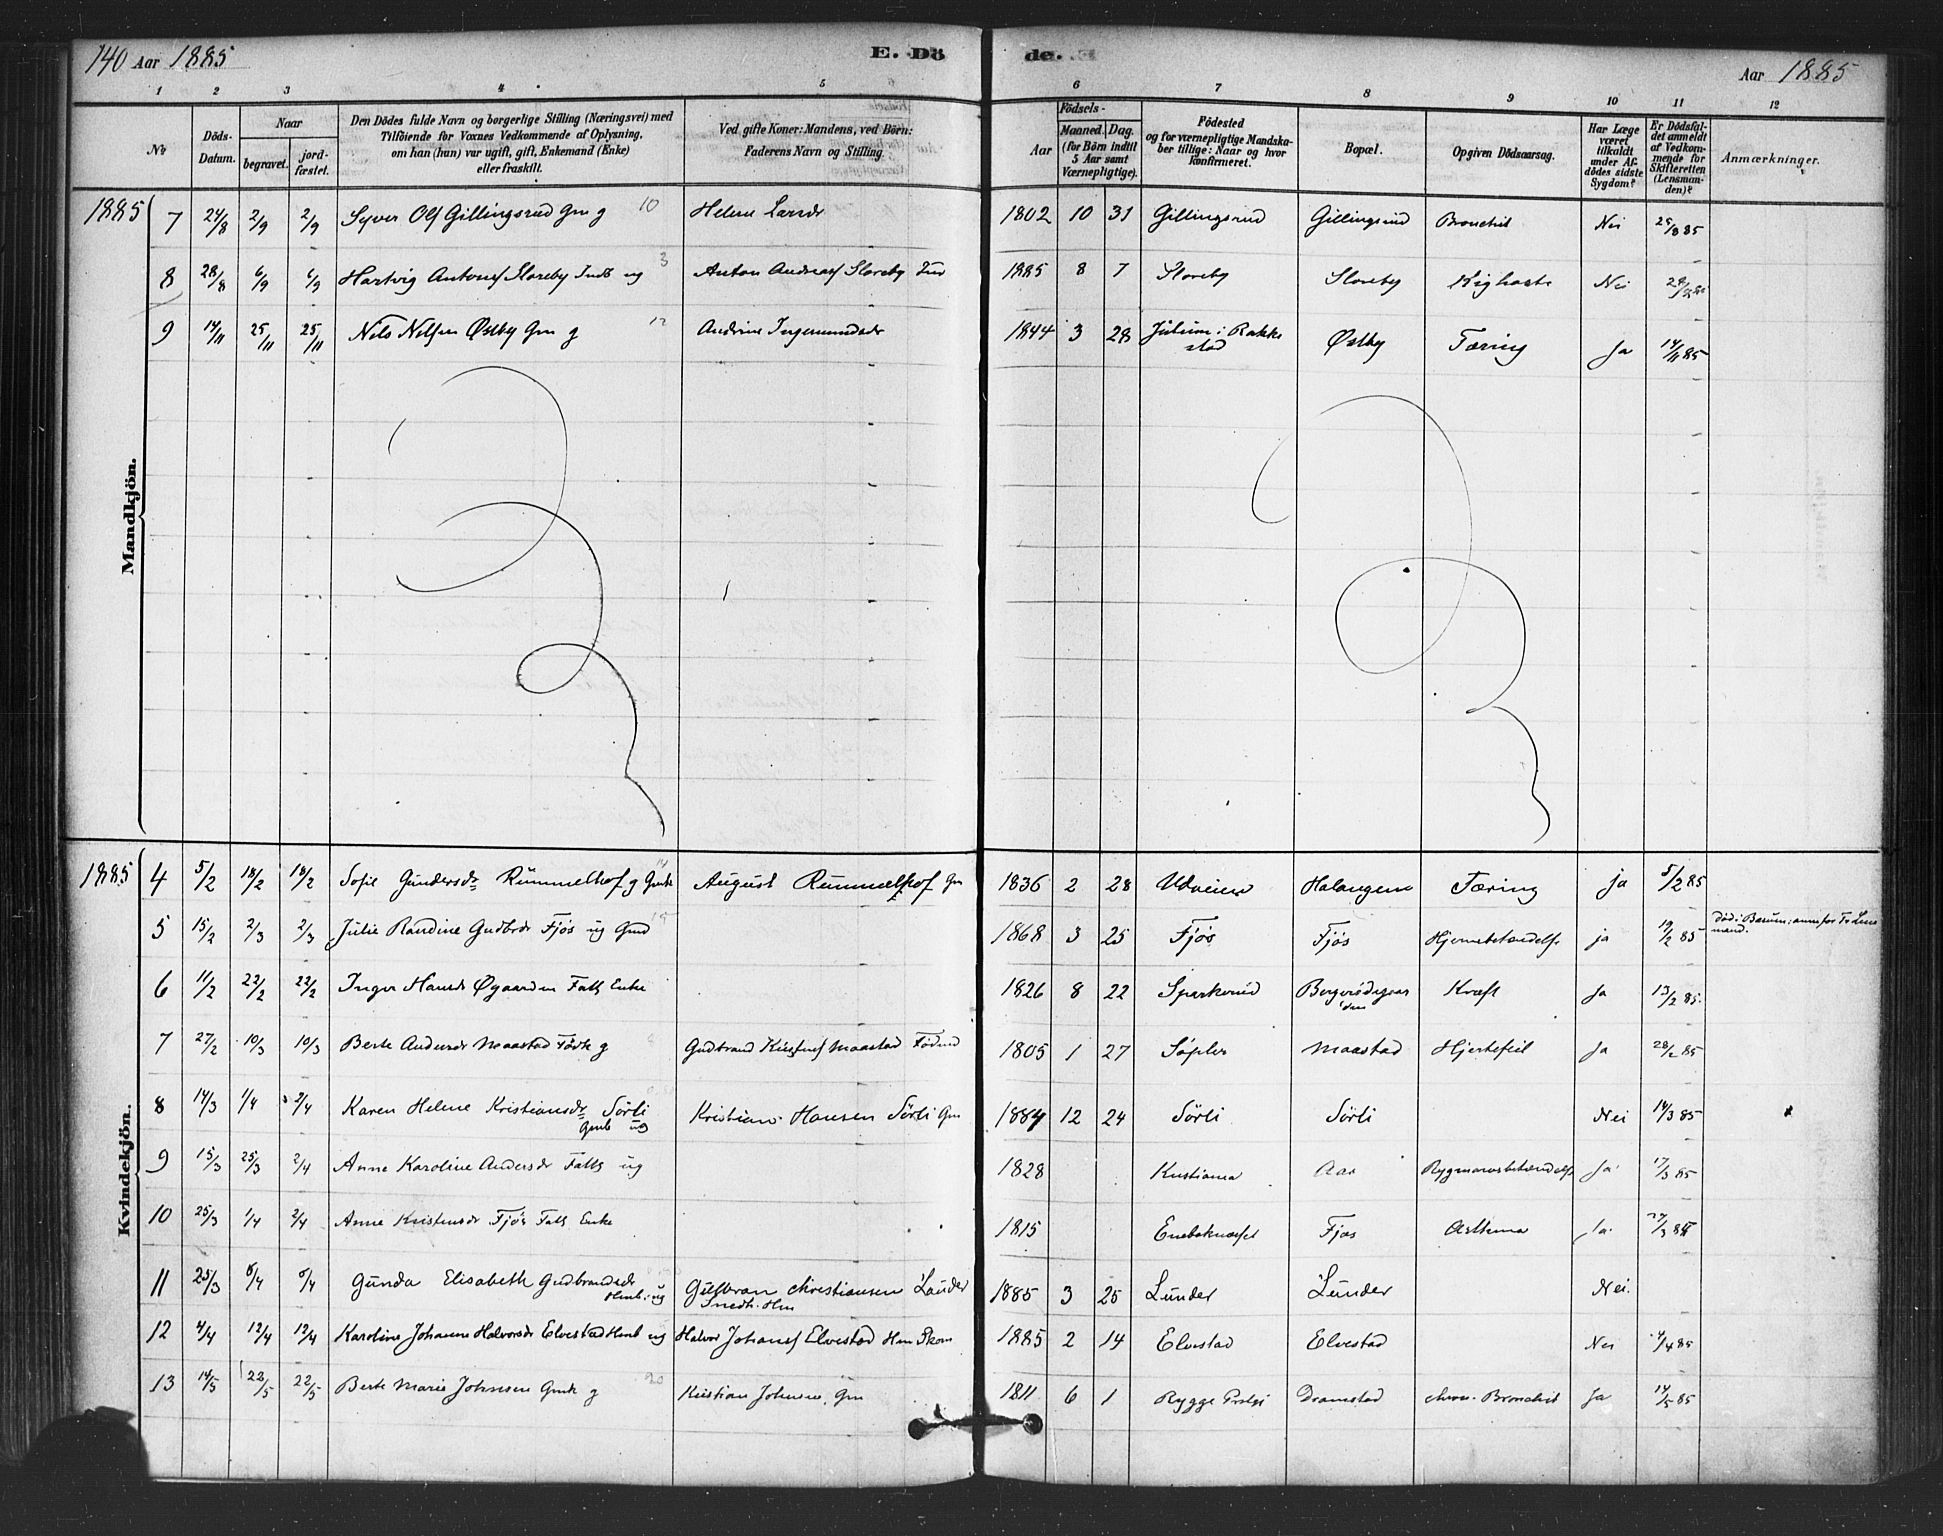 140 Aar 1885 E. Dö de. Aar 1885
1 2 3 4 5 6 7 8 9 10 11 12
No
Döds-Datum.
Naar
begravet.
jord-fæstet.
Den Dödes fulde Navn og borgerlige Stilling (Næringsvei) med
Tilföiende for Voxnes Vedkommende af Oplysning,
om han (hun) var ugift, gift, Enkemand (Enke)
eller fraskilt.
Ved gifte Koner: Mandens, ved Börn:
Faderens Navn og Stilling.
Aar
Födsels-
Maaned. Dag.
(for Börn indtil
5 Aar samt
Værnepligtige).
Födested
og for værnepligtige Mandska-
ber tillige: Naar og hvor
konfirmeret.
Bopæl.
Opgiven Dödsaarsag.
Har Læge
været
tilkaldt
under Af-
dödes sidste
Sygdom?
Er Dödsfal-
det anmeldt
af Vedkom-
mende for
Skifteretten
(Lensman-
den)?
Anmærkninger.
Mandkjön.
1885 7 24/8 2/9 2/9 Syver Ols Gillingsrud Gm g 10 Helene Larsdr 1802 10 31 Gillingsrud Gillingsrud Bronchit Nei 25/8 85
8 28/8 6/9 6/9 Hartvig Antons Sloreby ug 3 Anton Andreas Sloreby 1885 8 7 Sloreby Sloreby Kighoste Nei
9 14/11 25/11 25/11 Nils Nilsen Østby Gm g 12 Andrine Ingemundsdr 1844 3 28 Østby Tæring Ja 14/11 85
Kvindekjön.
1885 4 5/2 18/2 18/2 Sofie Gundersdr Rummelhof g Gmk 14 August Rummelhof Gm 1836 2 28 Udveien Halangene Tæring ja 5/2 85
5 15/2 2/3 2/3 Julie Randine Gudbrdr Fjøs ug 1868 3 25 Fjøs Fjøs Hjernebetændelse ja 19/2 85 Død i Bærum: anm for
6 11/2 22/2 22/2 Inger Hansdr Øgaarden Fatt Enke 1826 8 22 Sparkerud Kræft Ja 13/2 85
7 27/2 10/3 10/3 Berte Andersdr Maastad g Gudbrand Maastad 1805 1 27 Maastad Hjertefeil Ja 28/2 85
8 14/3 1/4 2/4 Karen Helene Kristiansdr Sörli
Gmb ug Kristian Hansen Sörli Gm 1884 12 24 Sörli Sörli Nei 14/3 85
9 15/3 25/3 2/4 Anne Karoline Andersdr Fatt ug 1828 Kristiania Aas Rygmarvsbetændelse Ja 17/3 85
10 25/3 1/4 2/4 Anne Kristensdr Fjøs Fatt Enke 1815 Enebaknesset Fjøs Asthma Ja
11 25/3 5/4 5/4 Gunda Elisabeth Gudbrandsdr
Hmb. ug Gulbran Christiansen Lunder
Snedk. Hm 1885 3 25 Lunder Lunder Nei
12 4/4 12/4 12/4 Karoline Johanne Halvorsdr Elvestad Hmb ug Halvor Johans Elvestad Hm Skom 1885 2 14 Elvestad Elvestad Nei 4/4 85
13 14/5 22/5 22/5 Berte Marie Johnsen Gmk g 20 Kristian Johnsen, Gm 1811 6 1 Rygge Dramstad chron. Bronchit Ja 14/5 85